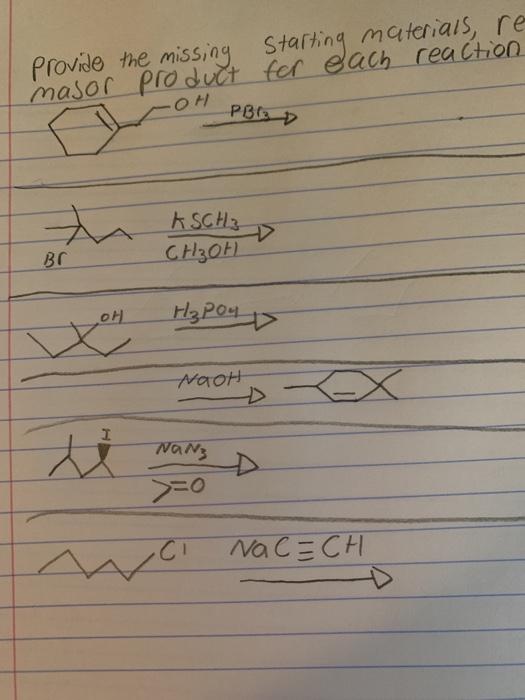 Provide the missing starting materials, re
major product for each reaction
OH
PBr3
KSCH3
Br
CH3OH
OH
H3PO4
NaOH
I
NaN3
=O
Cl NaC≡CH